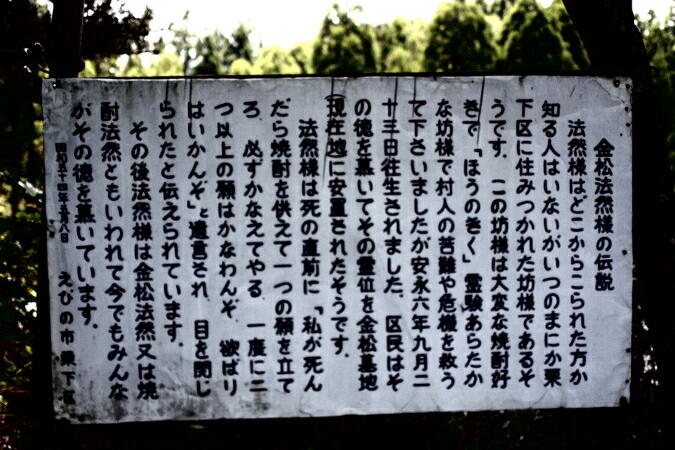 金松法然様の伝説
法然様はどこからこられた方か
知る人はいないがいつのまにか栗
下区に住みつかれた坊様であるそ
うです。この坊様は大変な焼酎好
きで「ほうのきく」霊験あらたか
な坊様で村人の苦難や危機を救う
て下さいましたが安永六年九月二
十三日往生されました。区民はそ
の徳を慕いてその霊位を金松墓地
(現在地)に安置されたそうです。
法然様は死の直前に「私が死ん
だら焼酎を供えて一つの願を立て
ろ、必ずかなえてやる、一度に二
つ以上の願はかなわんぞ、欲ばり
はいかんぞ」と遺言され、目を閉じ
られたと伝えられています。
その後法然様は金松法然又は焼
酎法然ともいわれて今でもみんな
がその徳を慕いています。
昭和五十四年五月八日 えびの市栗下区